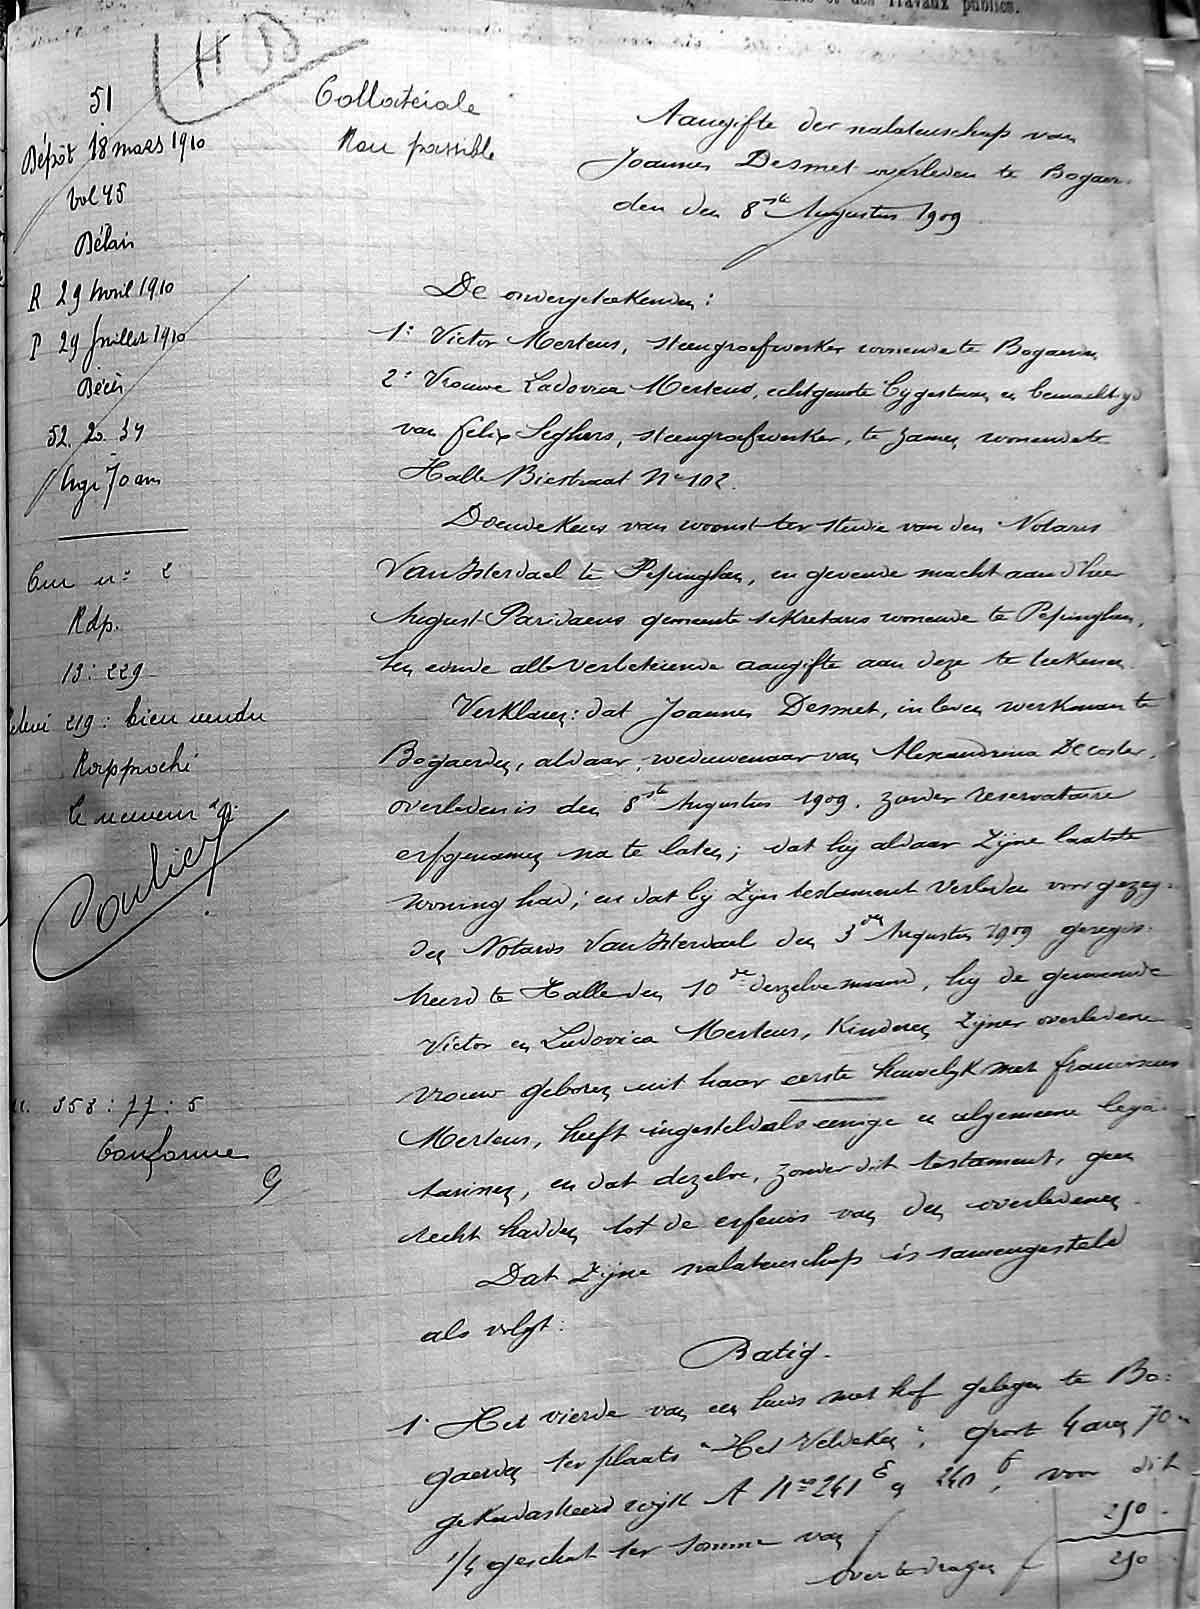 et des Travaux publics.
51
Dépôt 18 mars 1910
vol 45
Délais
R 29 Avril 1910
P 29 Juillet 1910
Décès
52. 20. 34
Age 70 ans
Rdp.
13: 229
219: bien vendu
Rapproché
Le receveur
358: 77: 5
Conforme
Collatérale
Non passible
Aangifte der nalatenschap van
Joannes Desmet overleden te Bogaer-
den den 8ste Augustus 1909
De ondergeteekenden:
1: Victor Mertens, steengroefwerker wonende te Bogaerden
2: Vrouwe Ludovica Mertens, echtgenote bygestaan en bemachtigd
van Felix Seghers, steengroefwerker, te zamen wonende te
Halle Biestraat No 102.
Doende keus van woonst ter studie van den Notaris
Van Isterdael te Pepinghen, en gevende macht aan d'heer
August Paridaens gemeente sekretaris wonende te Pepinghen,
ten einde alle verbeterende aangifte aan deze te teekenen
Verklaren: dat Joannes Desmet, in leven werkman te
Bogaerden, aldaar, weduwenaar van Alexandrina De coster,
overleden is den 8ste Augustus 1909. zonder reservataire
erfgenamen na te laten; dat hy aldaar zijne laatste
woning had; en dat bij zijn testament verleden voor gezeg-
den Notaris Van Isterdael den 3den Augustus 1909 geregis-
treerd te Halle den 10de derzelve maand, hy de genoemde
Victor en Ludovica Mertens, kinderen zijner overledene
vrouw geboren uit haar eerste huwelijk met franciscus
Mertens, heeft ingesteld als eenige en algemeene lega-
tarissen, en dat dezelve, zonder dit testament, geen
recht hadden tot de erfenis van den overledenen.
Dat zijne nalatenschap is samengesteld
als volgt:
Batig.
1: Het vierde van een huis met hof gelegen te Bo-
gaerden ter plaats "Het Veldeken", groot 4 aren 70
gekadastreerd wijk A Nos 241 E en 240 , voor dit
1/4 geschat ter somme van 250
over te dragen 250